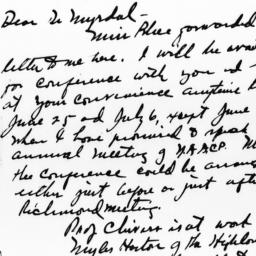 Dear Dr Myrdal -
Miss Blue forwarded
letter to me here. I will be avai
for conference with you
at your convenience anytime b
June 25 and July 6, except June
when I have promised to speak
annual meeting of NAACP.
the conference could be arran
either just before or just afte
Richmond meeting.
Prof. Chivers is at work
Myles Horton of the Highlan